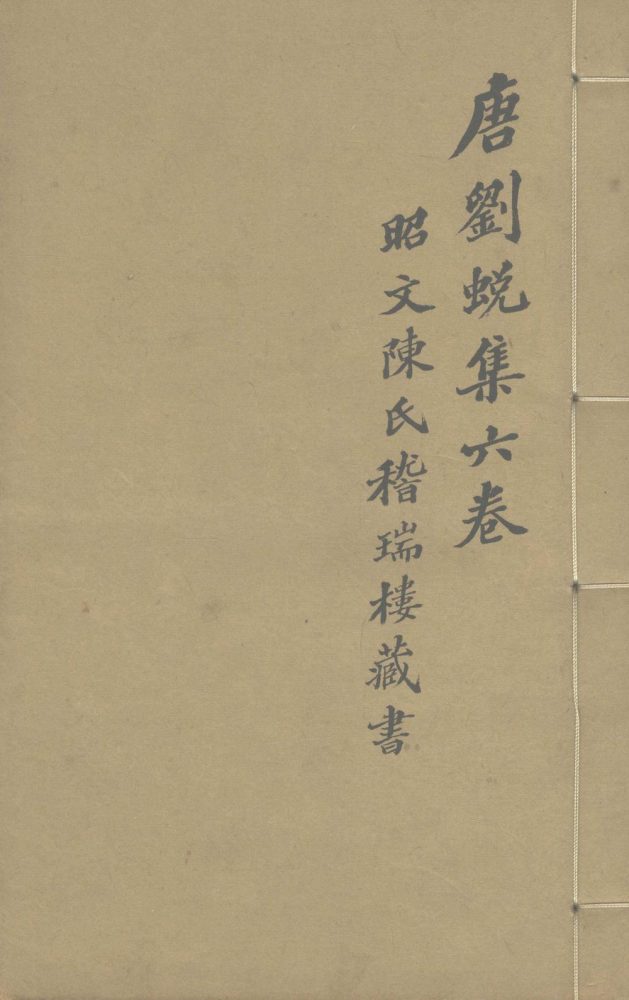 唐劉蛻集六卷
昭文陳氏稽瑞樓藏書